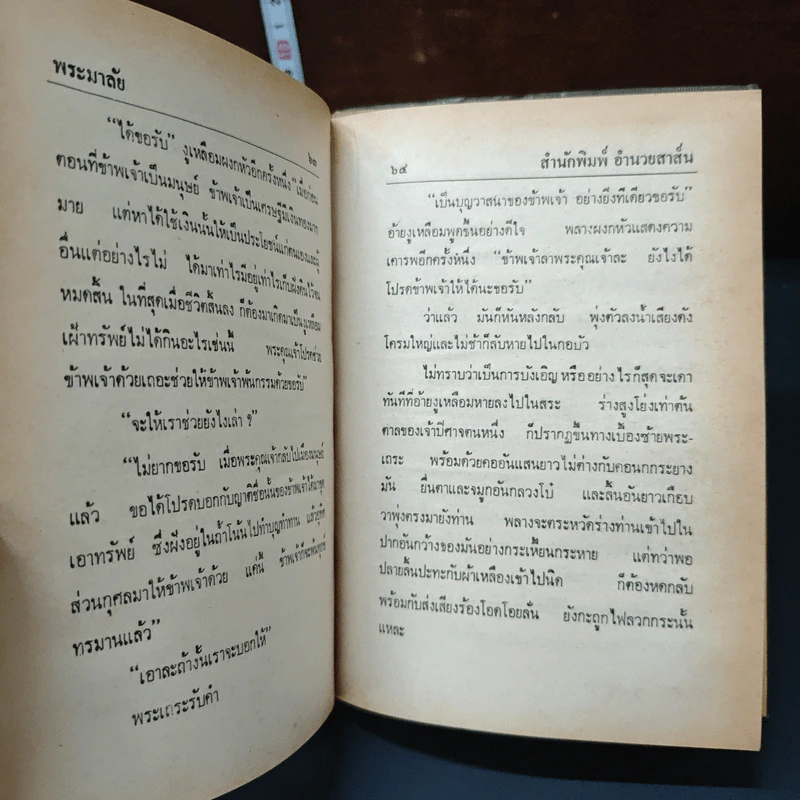 พระมาลัย
๖๓
“ได้ขอรับ” งูเหลือมผงกหัวอีกครั้งหนึ่ง “เมื่อก่อน
ตอนที่ข้าพเจ้าเป็นมนุษย์ ข้าพเจ้าเป็นเศรษฐีมีเงินทองมาก
มาย แต่หาได้ใช้เงินนั้นให้เป็นประโยชน์แก่ตนเองและผู้
อื่นแต่อย่างไรไม่ ได้มาเท่าไรมีอยู่เท่าไรเก็บฝังดินไว้จน
หมดสิ้น ในที่สุดเมื่อชีวิตสิ้นลง ก็ต้องมาเกิดมาเป็นงูเหลือม
เฝ้าทรัพย์ไม่ได้กินอะไรเช่นนี้ พระคุณเจ้าโปรดช่วย
ข้าพเจ้าด้วยเถอะช่วยให้ข้าพเจ้าพ้นกรรมด้วยขอรับ”
“จะให้เราช่วยยังไงเล่า ?”
“ไม่ยากขอรับ เมื่อพระคุณเจ้ากลับไปเมืองมนุษย์
แล้ว ขอได้โปรดบอกกับญาติชื่อนั้นของข้าพเจ้าให้มาขุด
เอาทรัพย์ ซึ่งฝังอยู่ในถ้ำโน้นไปทำบุญทำทาน แล้วอุทิศ
ส่วนกุศลมาให้ข้าพเจ้าด้วย แค่นี้ ข้าพเจ้าก็จะพ้นทุกข์
ทรมานแล้ว”
“เอาละถ้างั้นเราจะบอกให้”
พระเถระรับคำ
๖๔ สำนักพิมพ์ อำนวยสาส์น
“เป็นบุญวาสนาของข้าพเจ้า อย่างยิ่งทีเดียวขอรับ”
อ้ายงูเหลือมพูดขึ้นอย่างดีใจ พลางผงกหัวแสดงความ
เคารพอีกครั้งหนึ่ง “ข้าพเจ้าลาพระคุณเจ้าละ ยังไงได้
โปรดข้าพเจ้าให้ได้นะขอรับ”
ว่าแล้ว มันก็หันหลังกลับ พุ่งตัวลงน้ำเสียงดัง
โครมใหญ่และไม่ช้าก็ลับหายไปในกอบัว
ไม่ทราบว่าเป็นการบังเอิญ หรืออย่างไรก็สุดจะเดา
ทันทีที่อ้ายงูเหลือมหายลงไปในสระ ร่างสูงโย่งเท่าต้น
ตาลของเจ้าปีศาจตนหนึ่ง ก็ปรากฏขึ้นทางเบื้องซ้ายพระ-
เถระ พร้อมด้วยคออันแสนยาวไม่ต่างกับคอนกกระยาง
มัน ยื่นตาและจมูกอันกลวงโบ๋ และลิ้นอันยาวเกือบ
วาพุ่งตรงมายังท่าน พลางจะตระหวัดร่างท่านเข้าไปใน
ปากอันกว้างของมันอย่างกระเหี้ยนกระหาย แต่ทว่าพอ
ปลายลิ้นปะทะกับผ้าเหลืองเข้าไปนิด ก็ต้องหดกลับ
พร้อมกับส่งเสียงร้องโอดโอยลั่น ยังกะถูกไฟลวกกระนั้น
แหละ